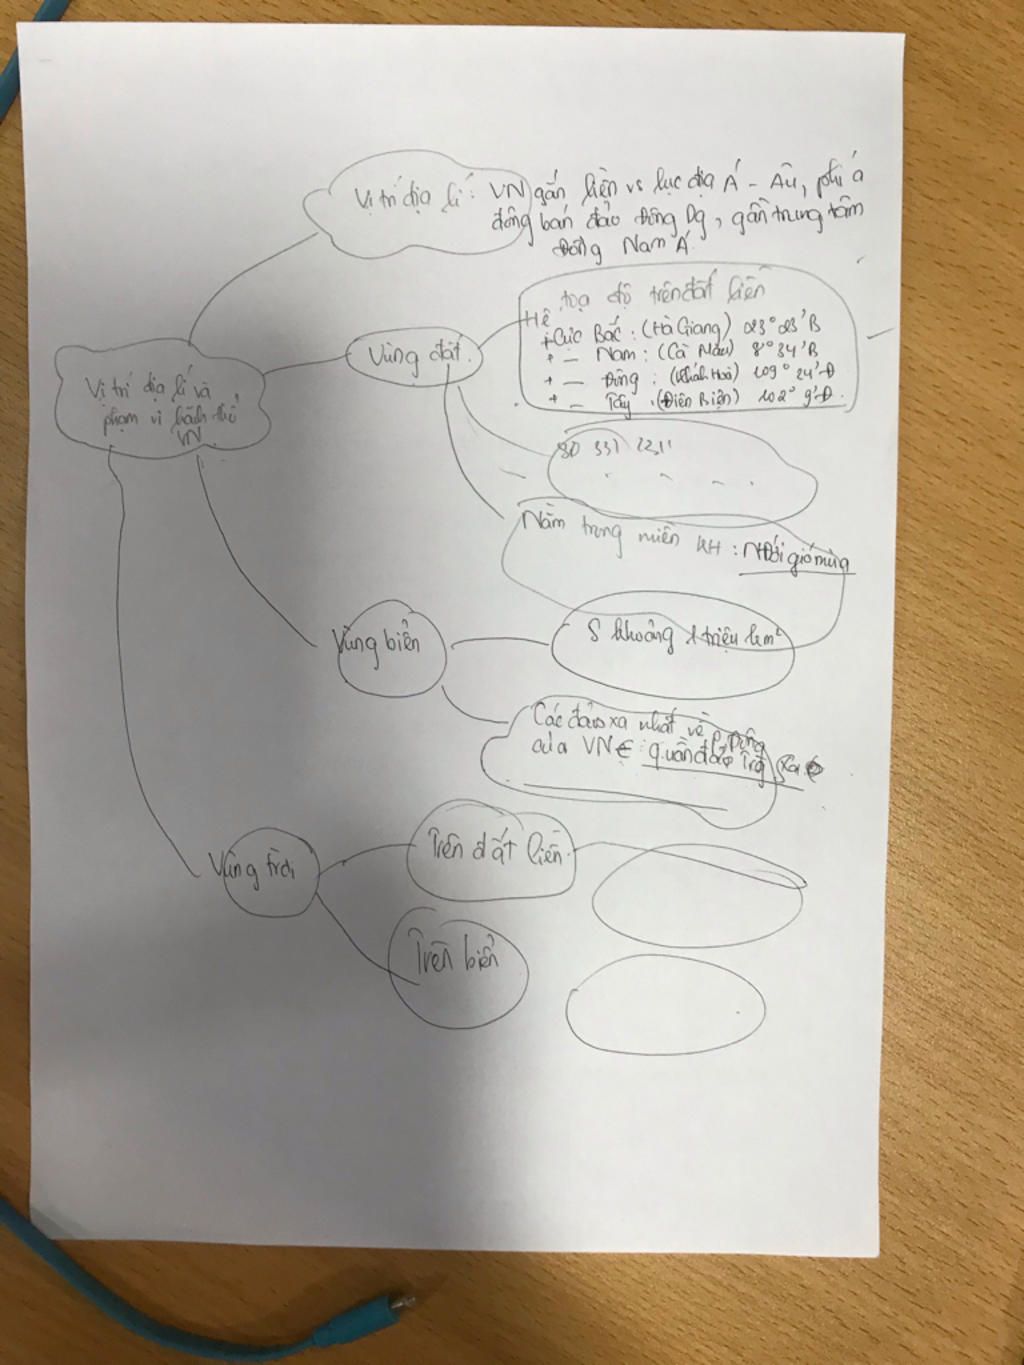 Vị trí địa lí: VN gắn liền vs lục địa Á - Âu, phía
đông bán đảo Đông Dg, gần trung tâm
Đông Nam Á.
Hệ tọa độ trên đất liền
+ Cực Bắc: (Hà Giang) 23° 23' B
+ — Nam: (Cà Mau) 8° 34' B
+ — Đông: (Khánh Hoà) 109° 24' Đ
+ — Tây: (Điện Biên) 102° 9' Đ.
Vùng đất.
Vị trí địa lí và
phạm vi lãnh thổ
VN
Nằm trong miền KH: Nđới gió mùa
Vùng biển
S khoảng 1 triệu km²
Các đảo xa nhất về p. Đông
của VN quần đảo Trg Sa
Vùng trời
Trên đất liền.
Trên biển